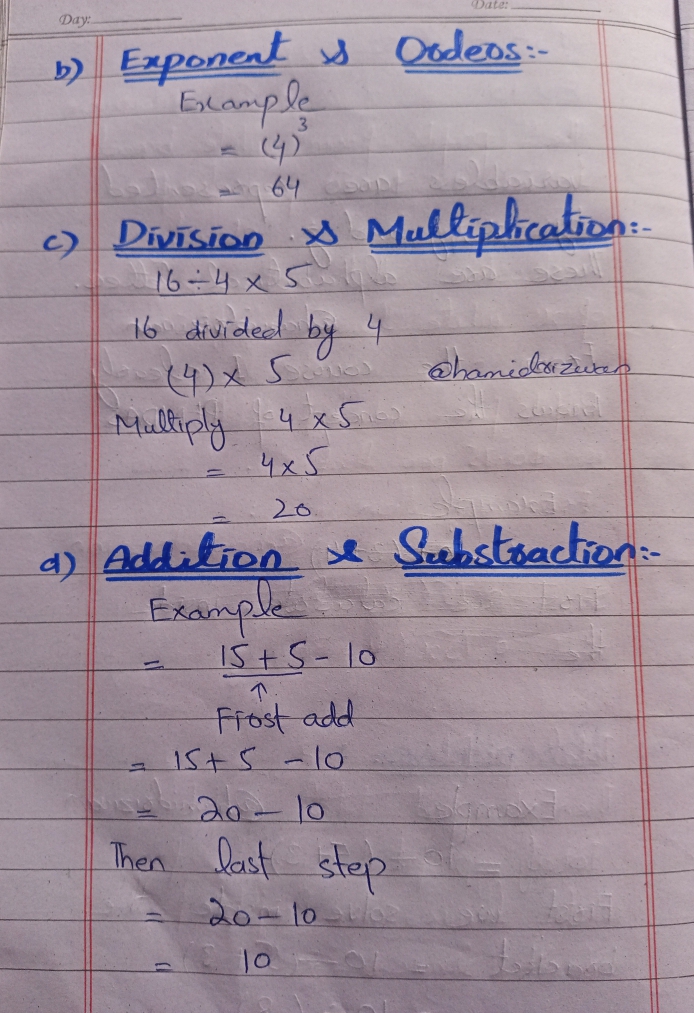 Day:
Date:
b) Exponent & Orders:-
Example
= (4)³
= 64
c) Division & Multiplication:-
16÷4 × 5
16 divided by 4
(4) × 5
@hamidrizwan
Multiply 4 × 5
= 4×5
= 20
d) Addition & Substraction:-
Example
= 15 + 5 - 10
↑
First add
= 15 + 5 - 10
= 20 - 10
Then last step
= 20 - 10
= 10